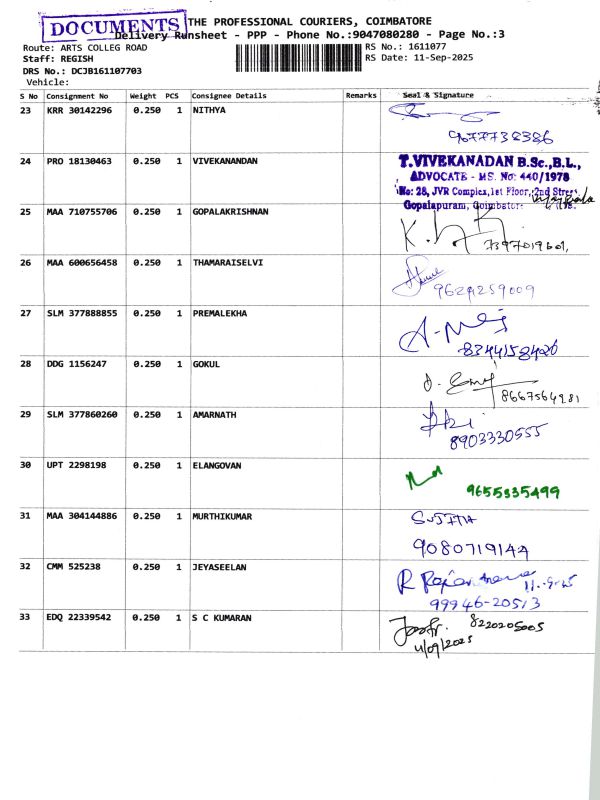 DOCUMENTS
THE PROFESSIONAL COURIERS, COIMBATORE
Delivery Runsheet - PPP - Phone No.:9047080280 - Page No.:3
Route: ARTS COLLEG ROAD
RS No.: 1611077
Staff: REGISH
RS Date: 11-Sep-2025
DRS No.: DCJB161107703
Vehicle:
S No Consignment No Weight PCS Consignee Details Remarks Seal & Signature
23 KRR 30142296 0.250 1 NITHYA
9677738386
24 PRO 18130463 0.250 1 VIVEKANANDAN
T.VIVEKANADAN B.Sc.,B.L.,
ADVOCATE - MS. No: 440/1978
No: 28, JVR Complex,1st Floor,2nd Street
Gopalapuram, Coimbatore
25 MAA 710755706 0.250 1 GOPALAKRISHNAN
7397019601,
26 MAA 600656458 0.250 1 THAMARAISELVI
9629259009
27 SLM 377888855 0.250 1 PREMALEKHA
8344158420
28 DDG 1156247 0.250 1 GOKUL
8667564981
29 SLM 377860260 0.250 1 AMARNATH
8903330555
30 UPT 2298198 0.250 1 ELANGOVAN
9655335499
31 MAA 304144886 0.250 1 MURTHIKUMAR
SUJITHA
9080719144
32 CMM 525238 0.250 1 JEYASEELAN
99946-20513
33 EDQ 22339542 0.250 1 S C KUMARAN
8220205005
11/09/2025